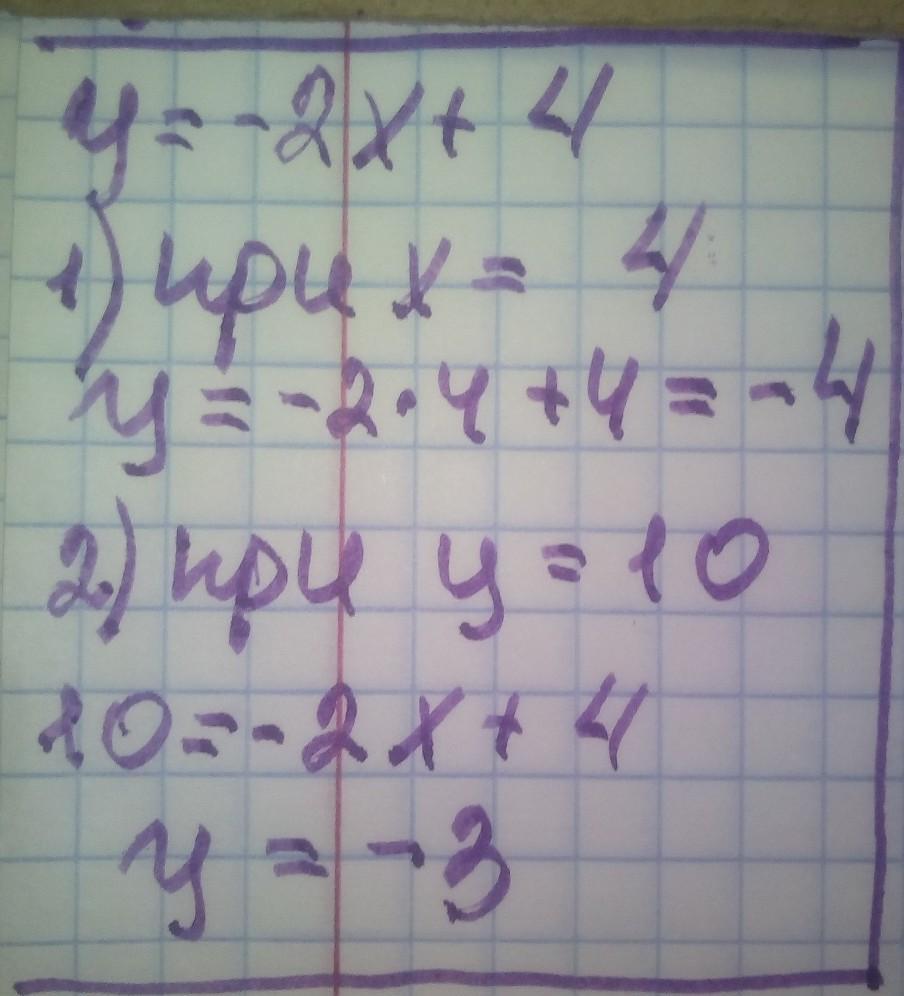 y = -2x + 4
1) при x = 4
y = -2·4 + 4 = -4
2) при y = 10
10 = -2x + 4
y = -3